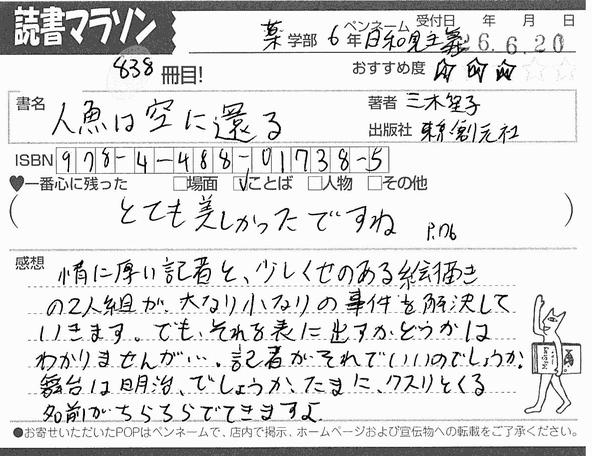 読書マラソン
薬学部 6年 ペンネーム 日和見主義 受付日 年 月 日
26.6.20
838冊目!
おすすめ度 ☆☆☆☆☆
書名 人魚は空に還る
著者 三木笙子
出版社 東京創元社
ISBN 978-4-488-01738-5
♥一番心に残った □場面 ☑ことば □人物 □その他
(とても美しかったですね P.76)
感想 情に厚い記者と、少しくせのある絵描き
の2人組が、大なり小なりの事件を解決して
いきます。でも、それを表に出すかどうかは
わかりませんがい、記者がそれでいいのでしょうか?
舞台は明治、でしょうか、たまに、クスリとくる
名前がちらちらでてきますよ
●お寄せいただいたPOPはペンネームで、店内で掲示、ホームページおよび宣伝物への転載をご了承ください。